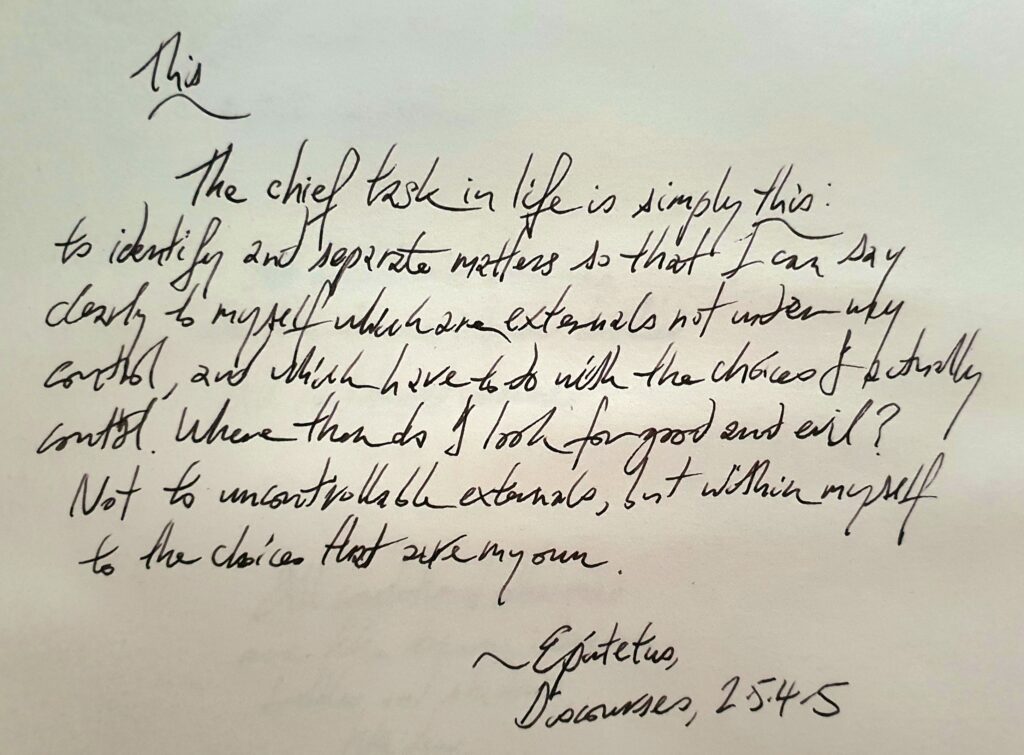 This
The chief task in life is simply this:
to identify and separate matters so that I can say
clearly to myself which are externals not under my
control, and which have to do with the choices I actually
control. Where then do I look for good and evil?
Not to uncontrollable externals, but within myself
to the choices that are my own.
~ Epictetus,
Discourses, 2.5.4-5